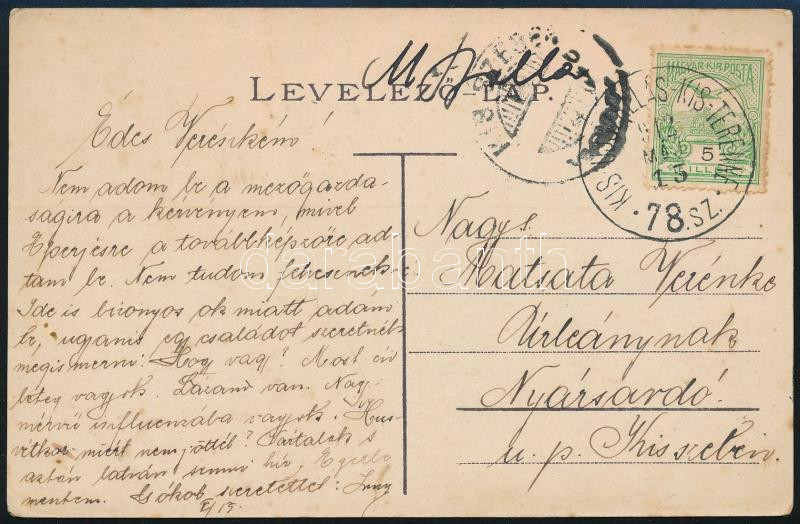 M. Jalla
LEVELEZŐ-LAP.
MAGYAR KIR. POSTA
5
KIS-TERENNE
78. SZ.
Édes Verénkém!
Nem adom be a mezőgazda-
ságira a kérvényem, mivel
Eperjesre a továbbképzőre ad-
tam be. Nem tudom felvesznek-e.
Ide is bizonyos ok miatt adám
be, ugyanis egy családot szeretnék
megismerni. Hogy vagy? Most én
beteg vagyok. Lázam van. Nagy-
mérvű influenzába vagyok. Hus-
vétkor miért nem jöttél? Vártalak s
aztán látván semmi hír,
mentem. Csókol szeretettel:
Nagys.
Matsata Verénke
Úrleánynak
Nyársardó.
u. p. Kisszeben.
darabanth